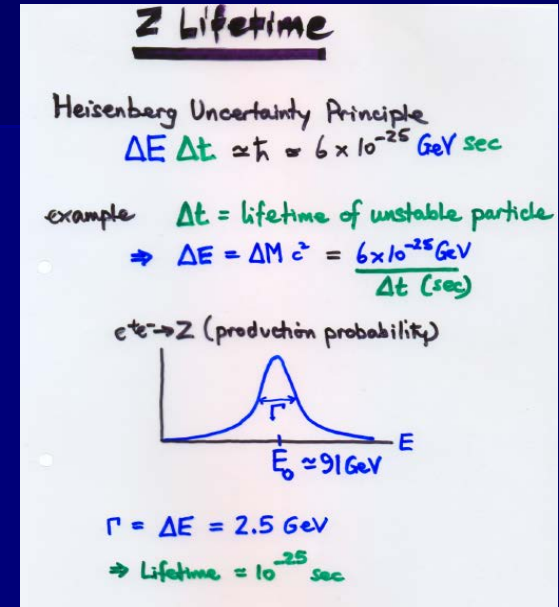 Z Lifetime
Heisenberg Uncertainty Principle
ΔE Δt ≃ ħ ≃ 6 × 10⁻²⁵ GeV sec
example Δt = lifetime of unstable particle
⇒ ΔE = ΔM c² = 6×10⁻²⁵ GeV
Δt (sec)
e⁺e⁻→Z (production probability)
Γ
E
E₀ ≃ 91 GeV
Γ = ΔE = 2.5 GeV
⇒ Lifetime = 10⁻²⁵ sec